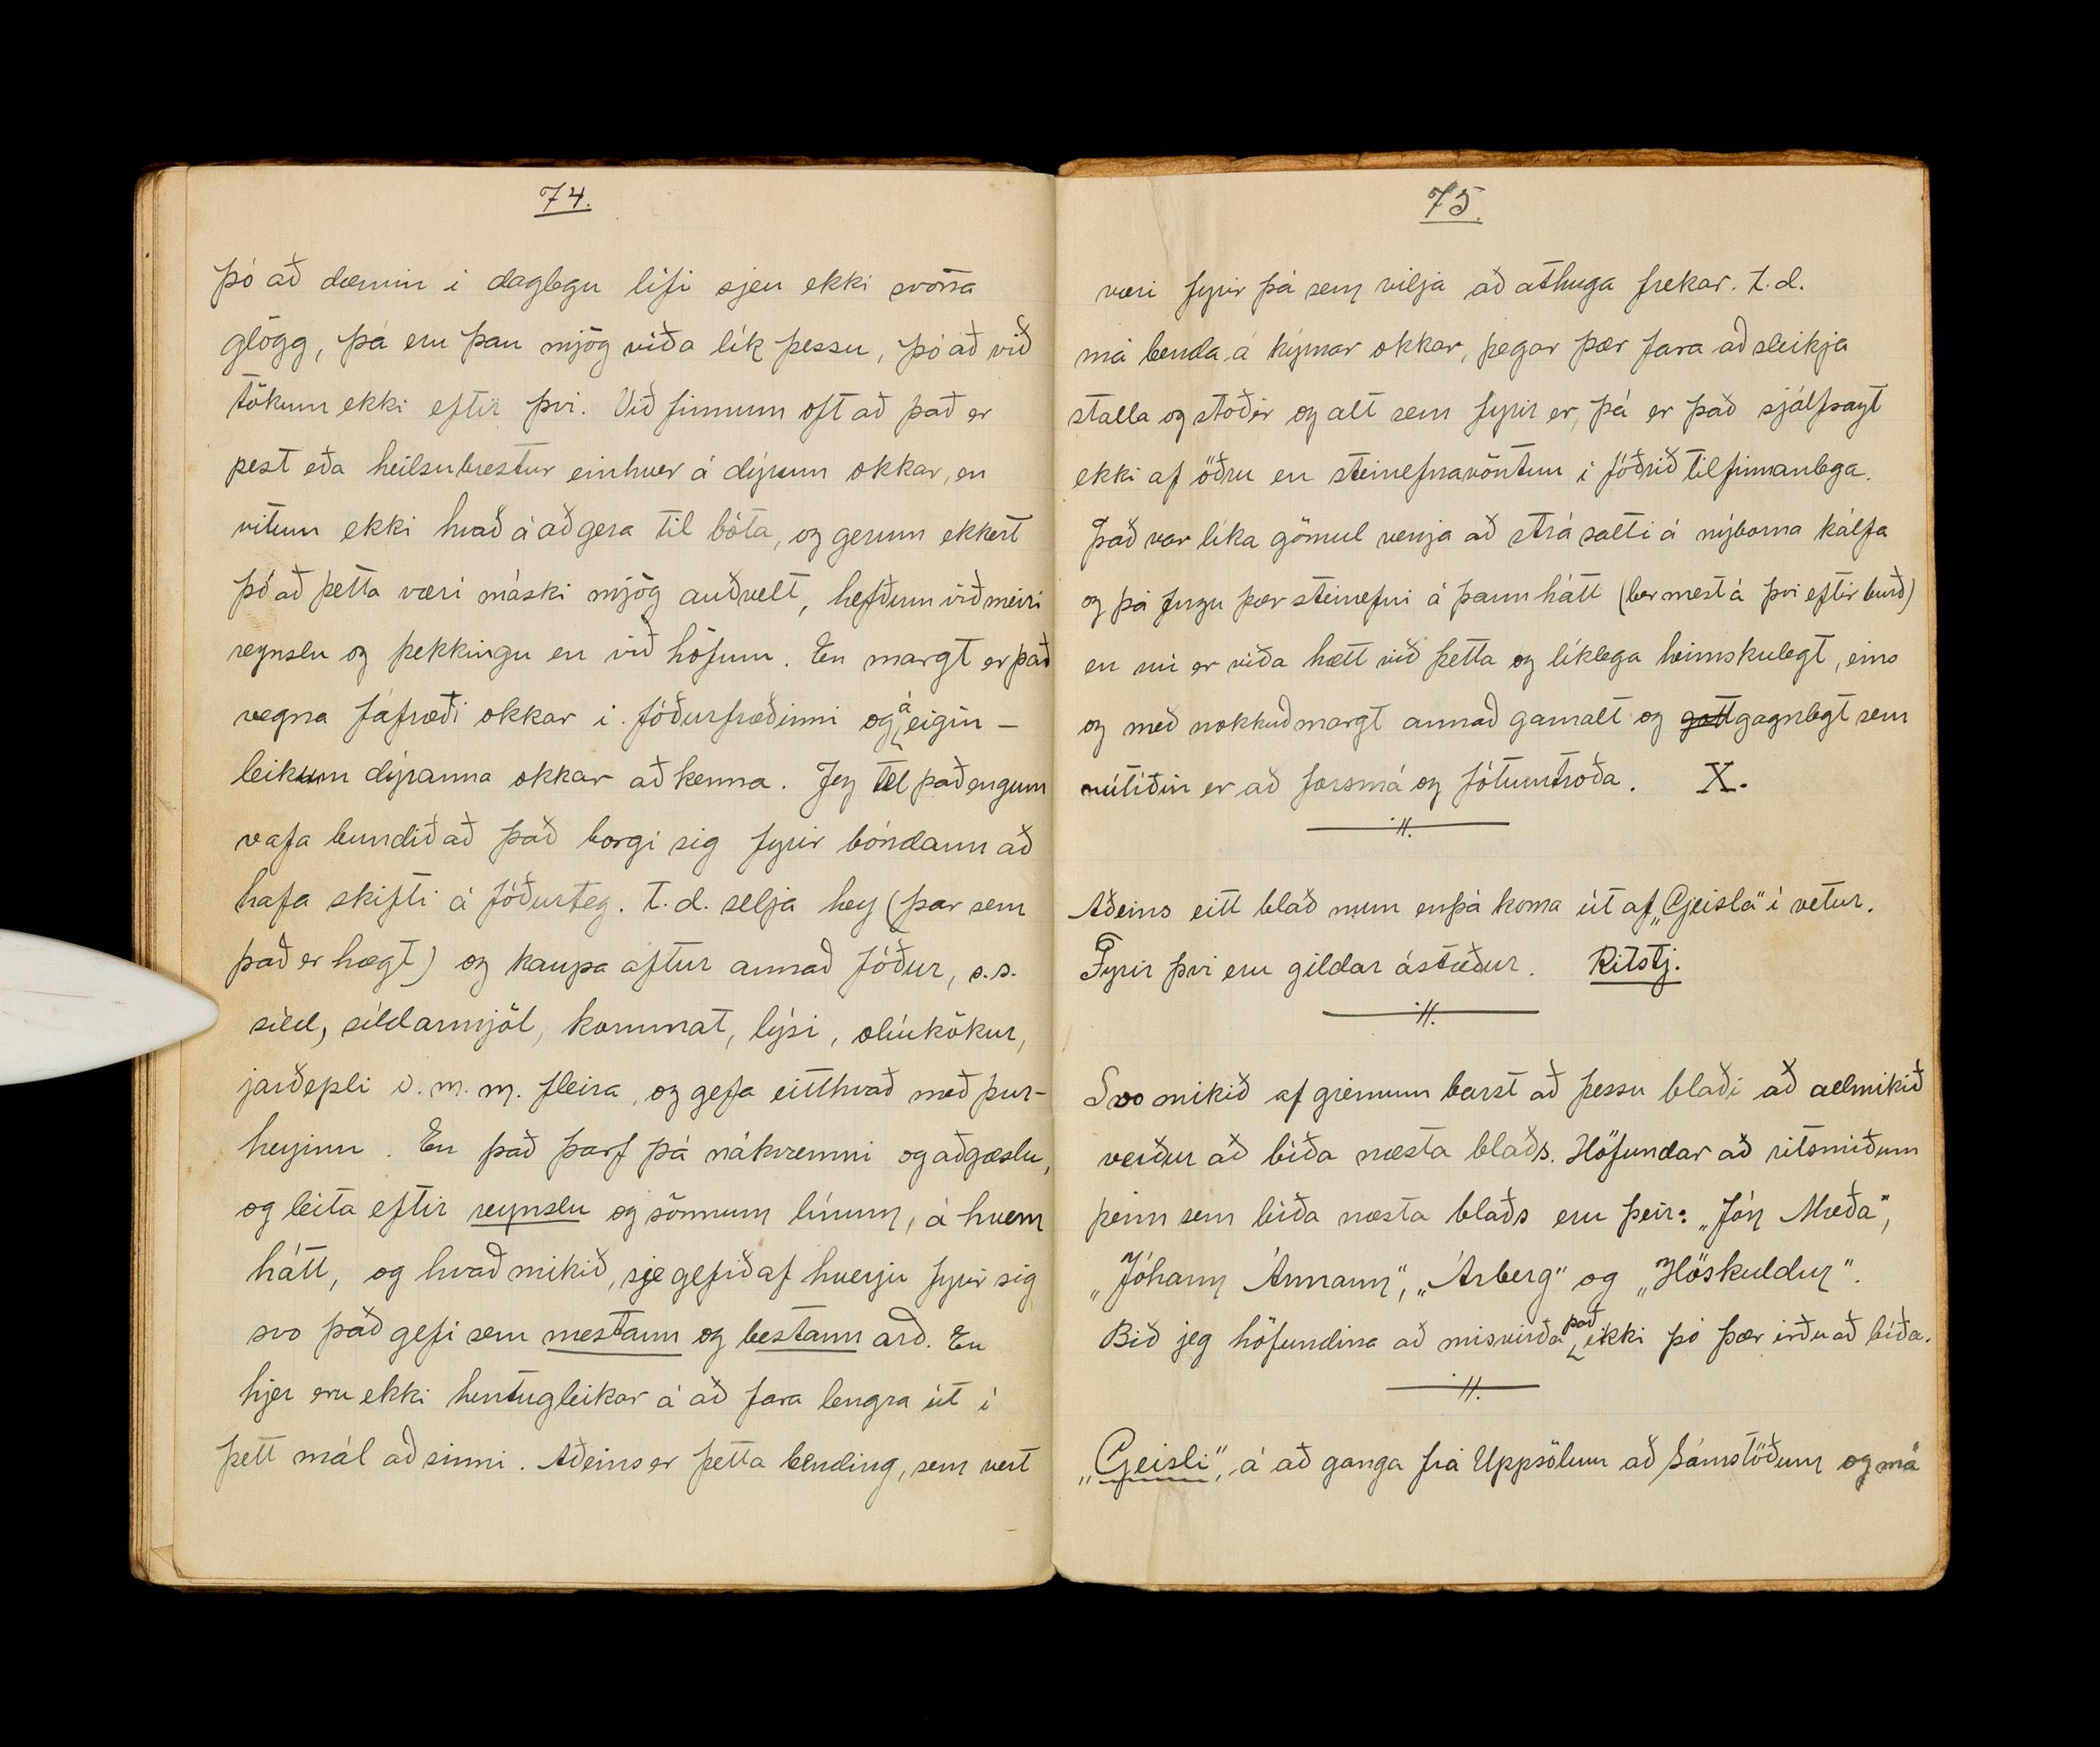 74.
þó að dæmin i daglegu lífi sjeu ekki svona
glögg, þá eru þau mjög víða lík þessu, þó að við
tökum ekki eftir þvi. Við finnum oft að það er
pest eða heilsubrestur einhver á dýrum okkar, en
vitum ekki hvað á að gera til bóta, og gerum ekkert
þó að þetta væri máski mjög auðvelt, hefðum við meiri
reynslu og þekkingu en við höfum. En margt er það
vegna fáfræði okkar i fóðurfræðinni og á eigin-
leikum dýranna okkar að kenna. Jeg tel það engum
vafa bundið að það borgi sig fyrir bóndann að
hafa skifti á fóðurteg. t.d. selja hey (þar sem
það er hægt) og kaupa aftur annað fóður, s.s.
síld, síldarmjöl, kornmat, lýsi, olíukökur,
jarðepli o.m.m. fleira, og gefa eitthvað með þur-
heyinu. En það þarf þá nákvæmni og aðgæslu,
og leita eftir reynslu og sönnum línum, á hvern
hátt, og hvað mikið, sje gefið af hverju fyrir sig
svo það gefi sem mestann og bestann arð. En
hjer eru ekki hentugleikar á að fara lengra út í
þett mál að sinni. Aðeins er þetta bending, sem vert
75.
væri fyrir þá sem vilja að athuga frekar. t.d.
má benda á kýrnar okkar, þegar þær fara að sleikja
stalla og stoðir og alt sem fyrir er, þá er það sjálfsagt
ekki af öðru en steinefnavöntun i fóðrið tilfinnanlega.
Það var líka gömul venja að strá salti á nýborna kálfa
og þá fengu þær steinefni á þann hátt (ber mest á þvi eftir burð)
en nú er víða hætt við þetta og líklega heimskulegt, eins
og með nokkuð margt annað gamalt og gott gagnlegt sem
nútíðin er að forsmá og fótumtroða. X.
Aðeins eitt blað mun enþá koma út af „Geisla“ í vetur.
Fyrir þvi eru gildar ástæður. Ritstj.
Svo mikið af greinum barst að þessu blaði að allmikið
verður að bíða næsta blaðs. Höfundar að ritsmíðum
þeim sem bíða næsta blaðs eru þeir: „Jón Mæða“,
„Jóhann Ármann“, „Árberg“ og „Höskuldur“.
Bið jeg höfundina að misvirða það ekki þó þær irðu að bíða.
„Geisli“, á að ganga frá Uppsölum að Sámstöðum og má